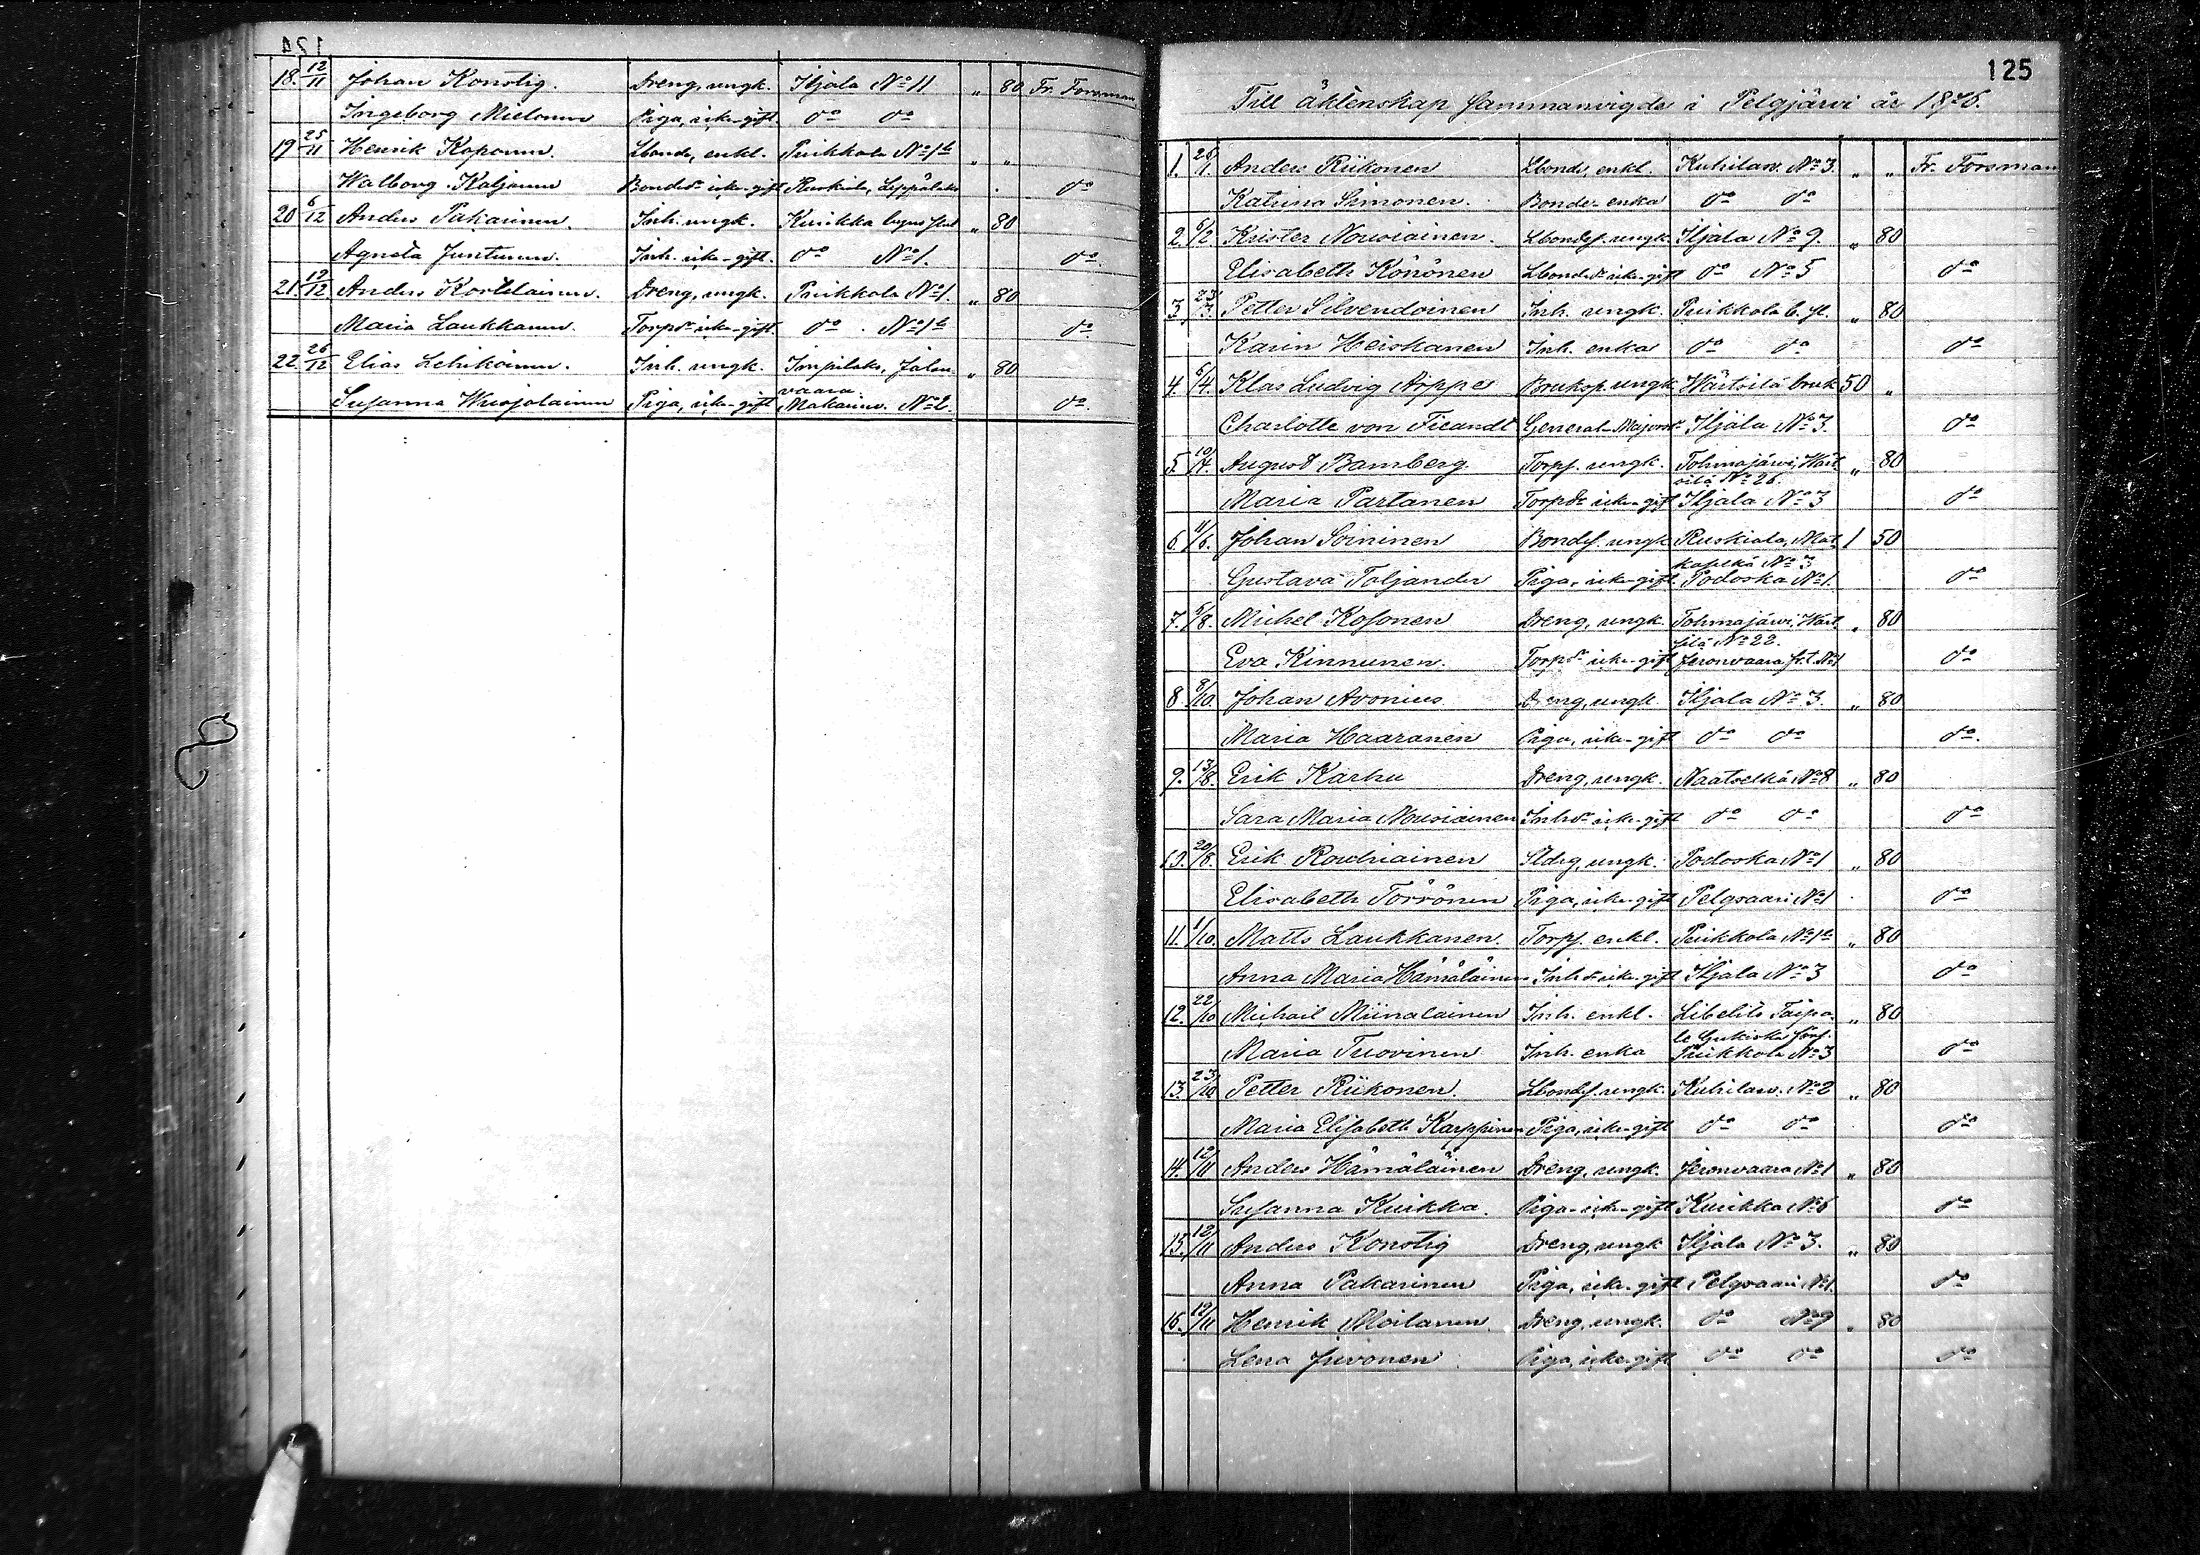 124
18. 12/11 Johan Konstig. Dreng, ungk. Ikjala No 11 " 80 Fr. Forsman
Ingeborg Mielonen Piga, icke-gift do do
19 25/11 Henrik Koponen. Lbonde, enkl. Puikkola No 1b " "
Walborg Kaljunen Bonded. icke-gift Ruskiala, Leppälaks do
20 6/12 Anders Pakarinen. Inh. ungk. Kuikka " 80
Agneta Juntunen. Inh. icke-gift. do No 1. do.
21. 12/12 Anders Kortelainen. Dreng, ungk. Puikkola No 1. " 80
Maria Laukkanen. Torpd. icke-gift. do No 1b do.
22. 26/12 Elias Lehikoinen. Inh. ungk. Impilaks, Jalon- " 80
vaara
Susanna Wuojolainen Piga, icke-gift Makainv. No 2. do.
125
Till äktenskap Sammanvigde i Pelgjärvi år 1876.
1. 26/1. Anders Riikonen Lbonde, enkl. Kuhilasv. No 3. " " Fr. Forsman
Katrina Simonen. Bonde-enka do do
2. 6/2 Krister Nousiainen. Lbondes. ungk. Ikjala No 9. " 80
Elisabeth Könönen Lbonded. icke-gift do No 5 do
3. 23/3. Petter Silvendoinen Inh. ungk. Puikkola " 80
Karin Heiskanen Inh. enka do do do
4. 6/4. Klas Ludvig Arppe Bruksp. ungk. Wärtsilä bruk 50 "
Charlotte von Fieandt General-Majorsd. Ikjala No 3. do
5. 10/4. August Bamberg. Torps. ungk. Tohmajärvi, Wärt- " 80
silä No 26.
Maria Partanen Torpd. icke-gift Ikjala No 3 do
6. 11/6. Johan Soininen Bonds. ungk. Ruskiala, Mat- 1 50
kaselkä No 3
Gustava Toljander Piga, icke-gift. Podoska No 1. do
7. 6/8. Michel Kosonen Dreng, ungk. Tohmajärvi, Wärt- " 80
silä No 22.
Eva Kinnunen. Torpd. icke-gift Jeronvaara No 1 do
8 8/10. Johan Avonius Dreng, ungk. Ikjala No 3. " 80
Maria Haaranen Piga, icke-gift do do do.
9. 13/8. Erik Karhu Dreng, ungk. Naatselkä No 8 " 80
Sara Maria Nousiainen Inhd. icke-gift do do do
10. 20/8. Erik Rouhiainen Sldrg, ungk. Podoska No 1 " 80
Elisabeth Törrönen Piga, icke-gift Pelgsaari No 1 do
11. 1/10. Matts Laukkanen. Torps. enkl. Puikkola No 1b " 80
Anna Maria Hämäläinen Inhd. icke-gift Ikjala No 3 do
12. 22/10 Michail Miinalainen Inh. enkl. Libelits Taipa- " 80
le Grekiska förs.
Maria Tuovinen Inh. enka Puikkola No 3 do
13. 23/10 Petter Riikonen. Lbonds. ungk. Kuhilasv. No 2 " 80
Maria Elisabeth Karppinen Piga, icke-gift do do do
14. 12/11 Anders Hämäläinen Dreng, ungk. Jeronvaara No 1 " 80
Susanna Kuikka. Piga-icke-gift Kuikka No 6 do
15. 12/11 Anders Konstig Dreng, ungk. Ikjala No 3. " 80
Anna Pakarinen Piga, icke-gift Pelgsaari No 1. do
16. 12/11 Henrik Moilanen. Dreng, ungk. do No 9 " 80
Lena Juvonen Piga, icke-gift do do do